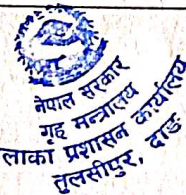 नेपाल सरकार
गृह मन्त्रालय
लाका प्रशासन कार्यालय
तुलसीपुर, दाङ